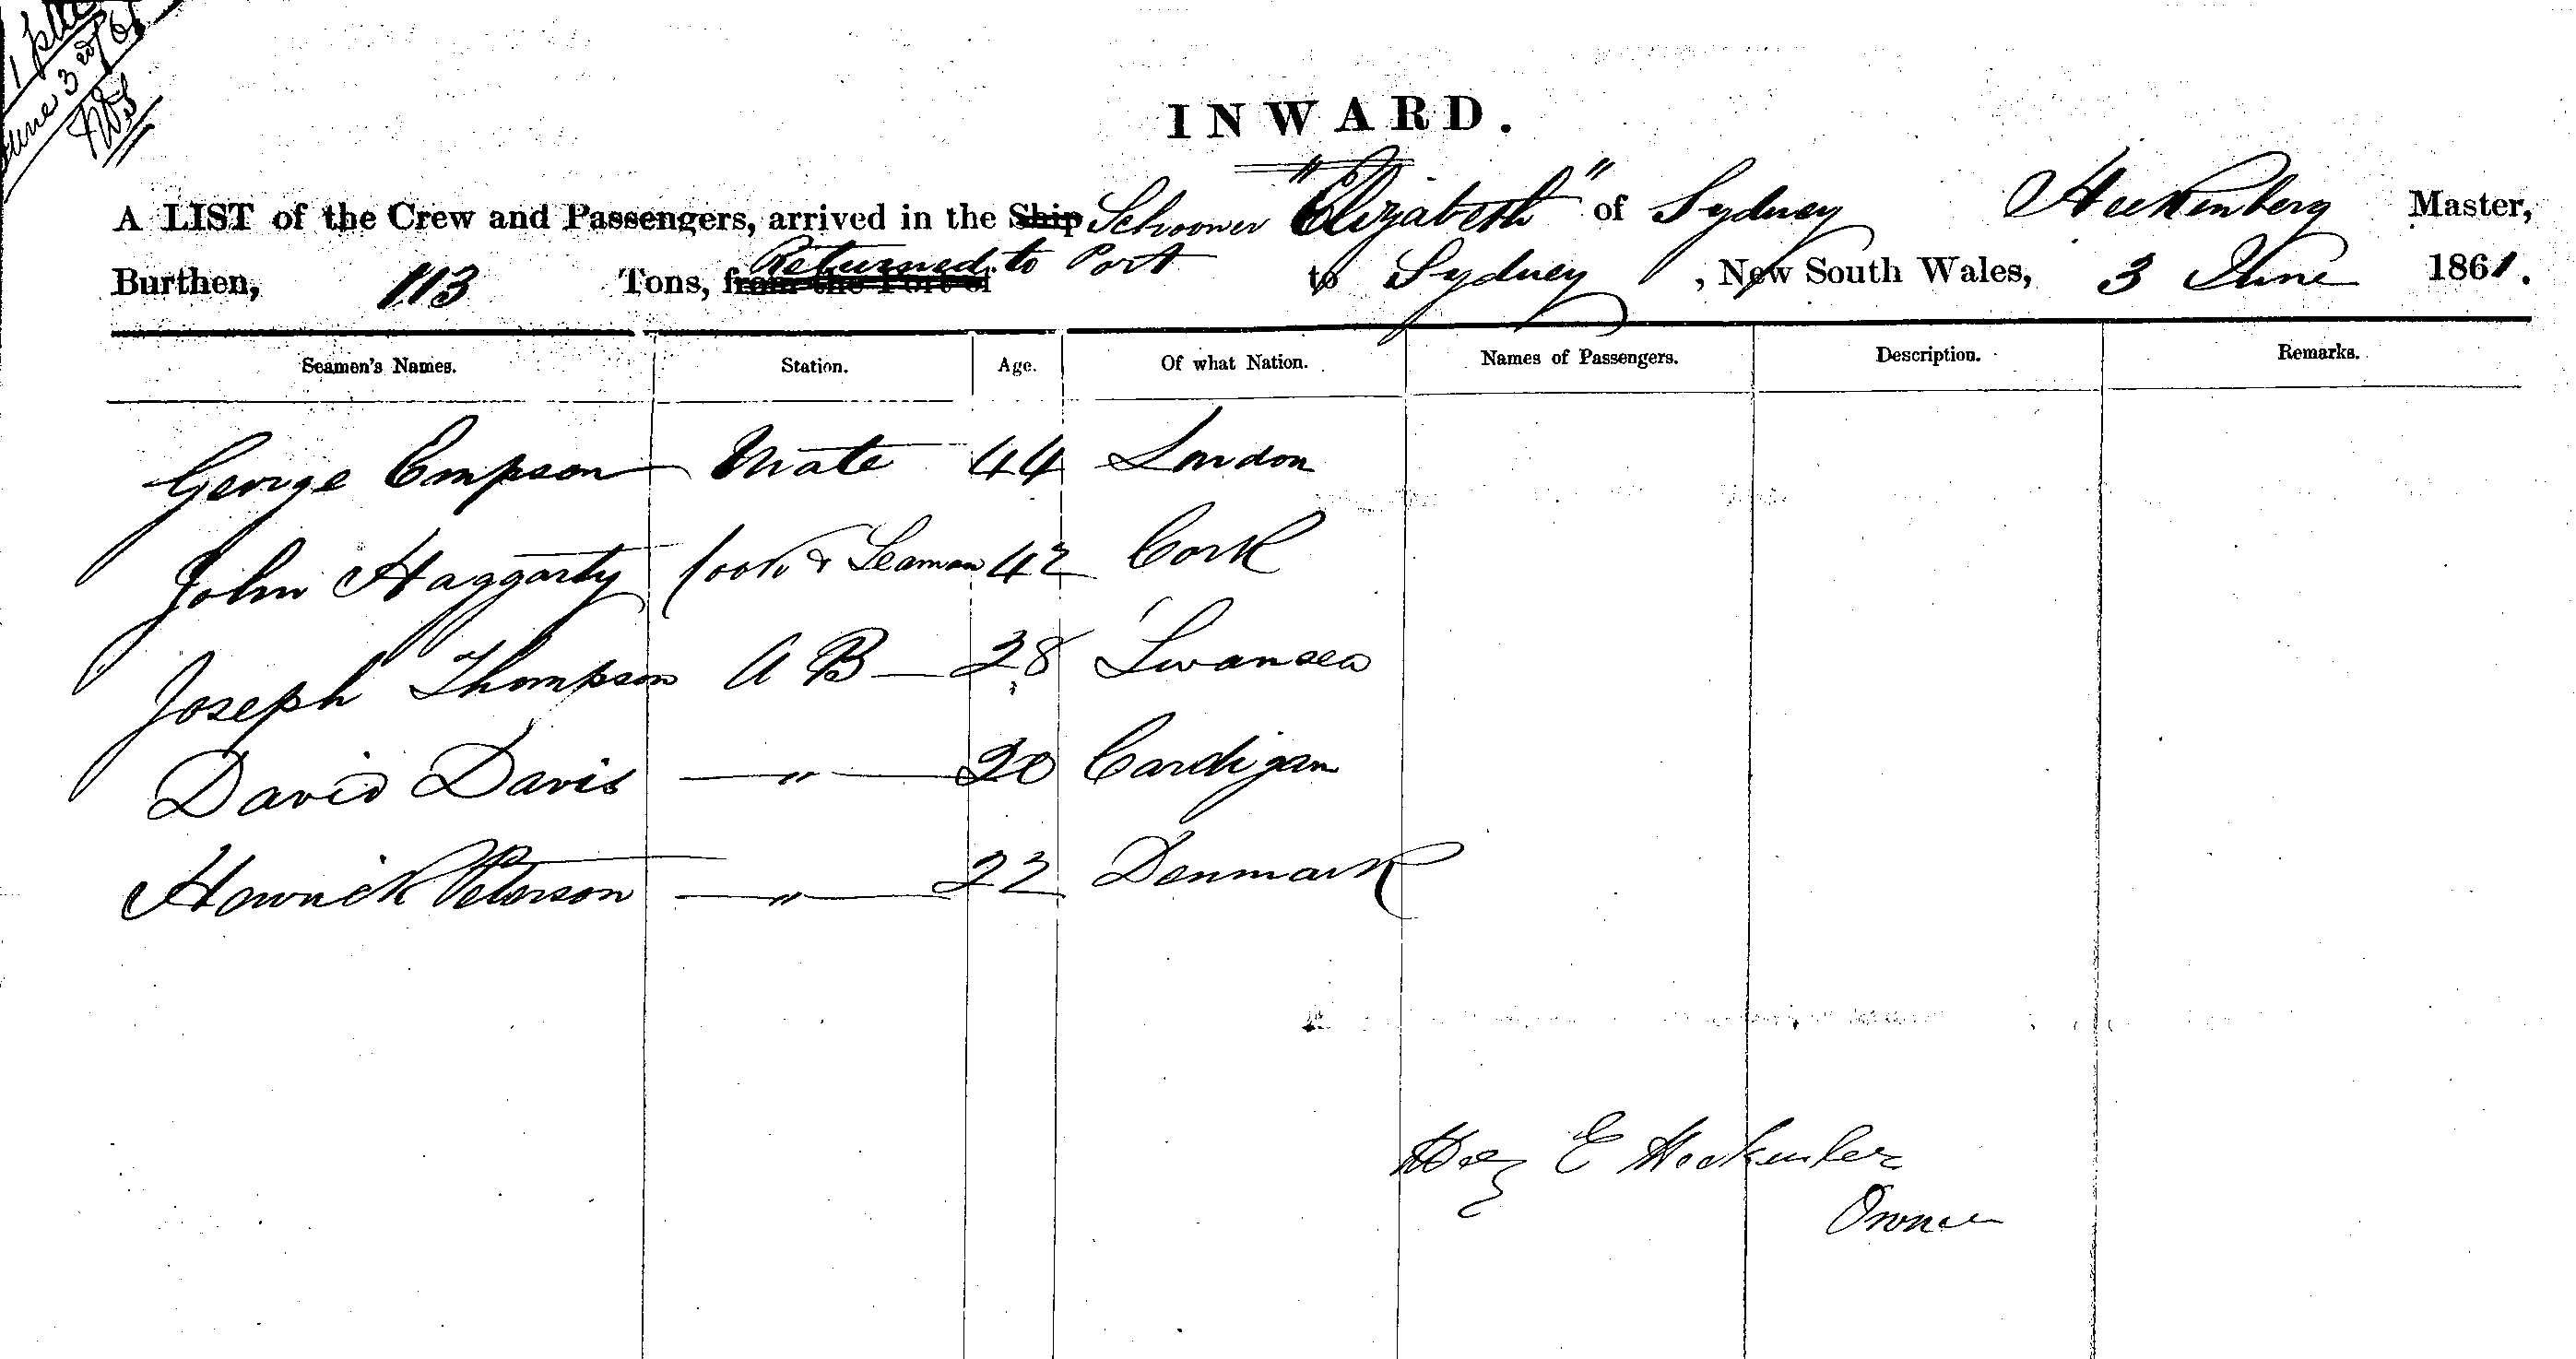 June 3rd/61
INWARD.
A LIST of the Crew and Passengers, arrived in the Ship Schooner "Elizabeth" of Sydney Heckenberg Master,
Burthen, 113 Tons, from the Port of Returned to Port to Sydney, New South Wales, 3 June 1861.
Seamen's Names. Station. Age. Of what Nation. Names of Passengers. Description. Remarks.
George Empson Mate 44 London
John Haggarty Cook & Seaman 42 Cork
Joseph Thompson A B 28 Swansea
David Davis " 20 Cardigan
Peterson " 22 Denmark
E
Owner